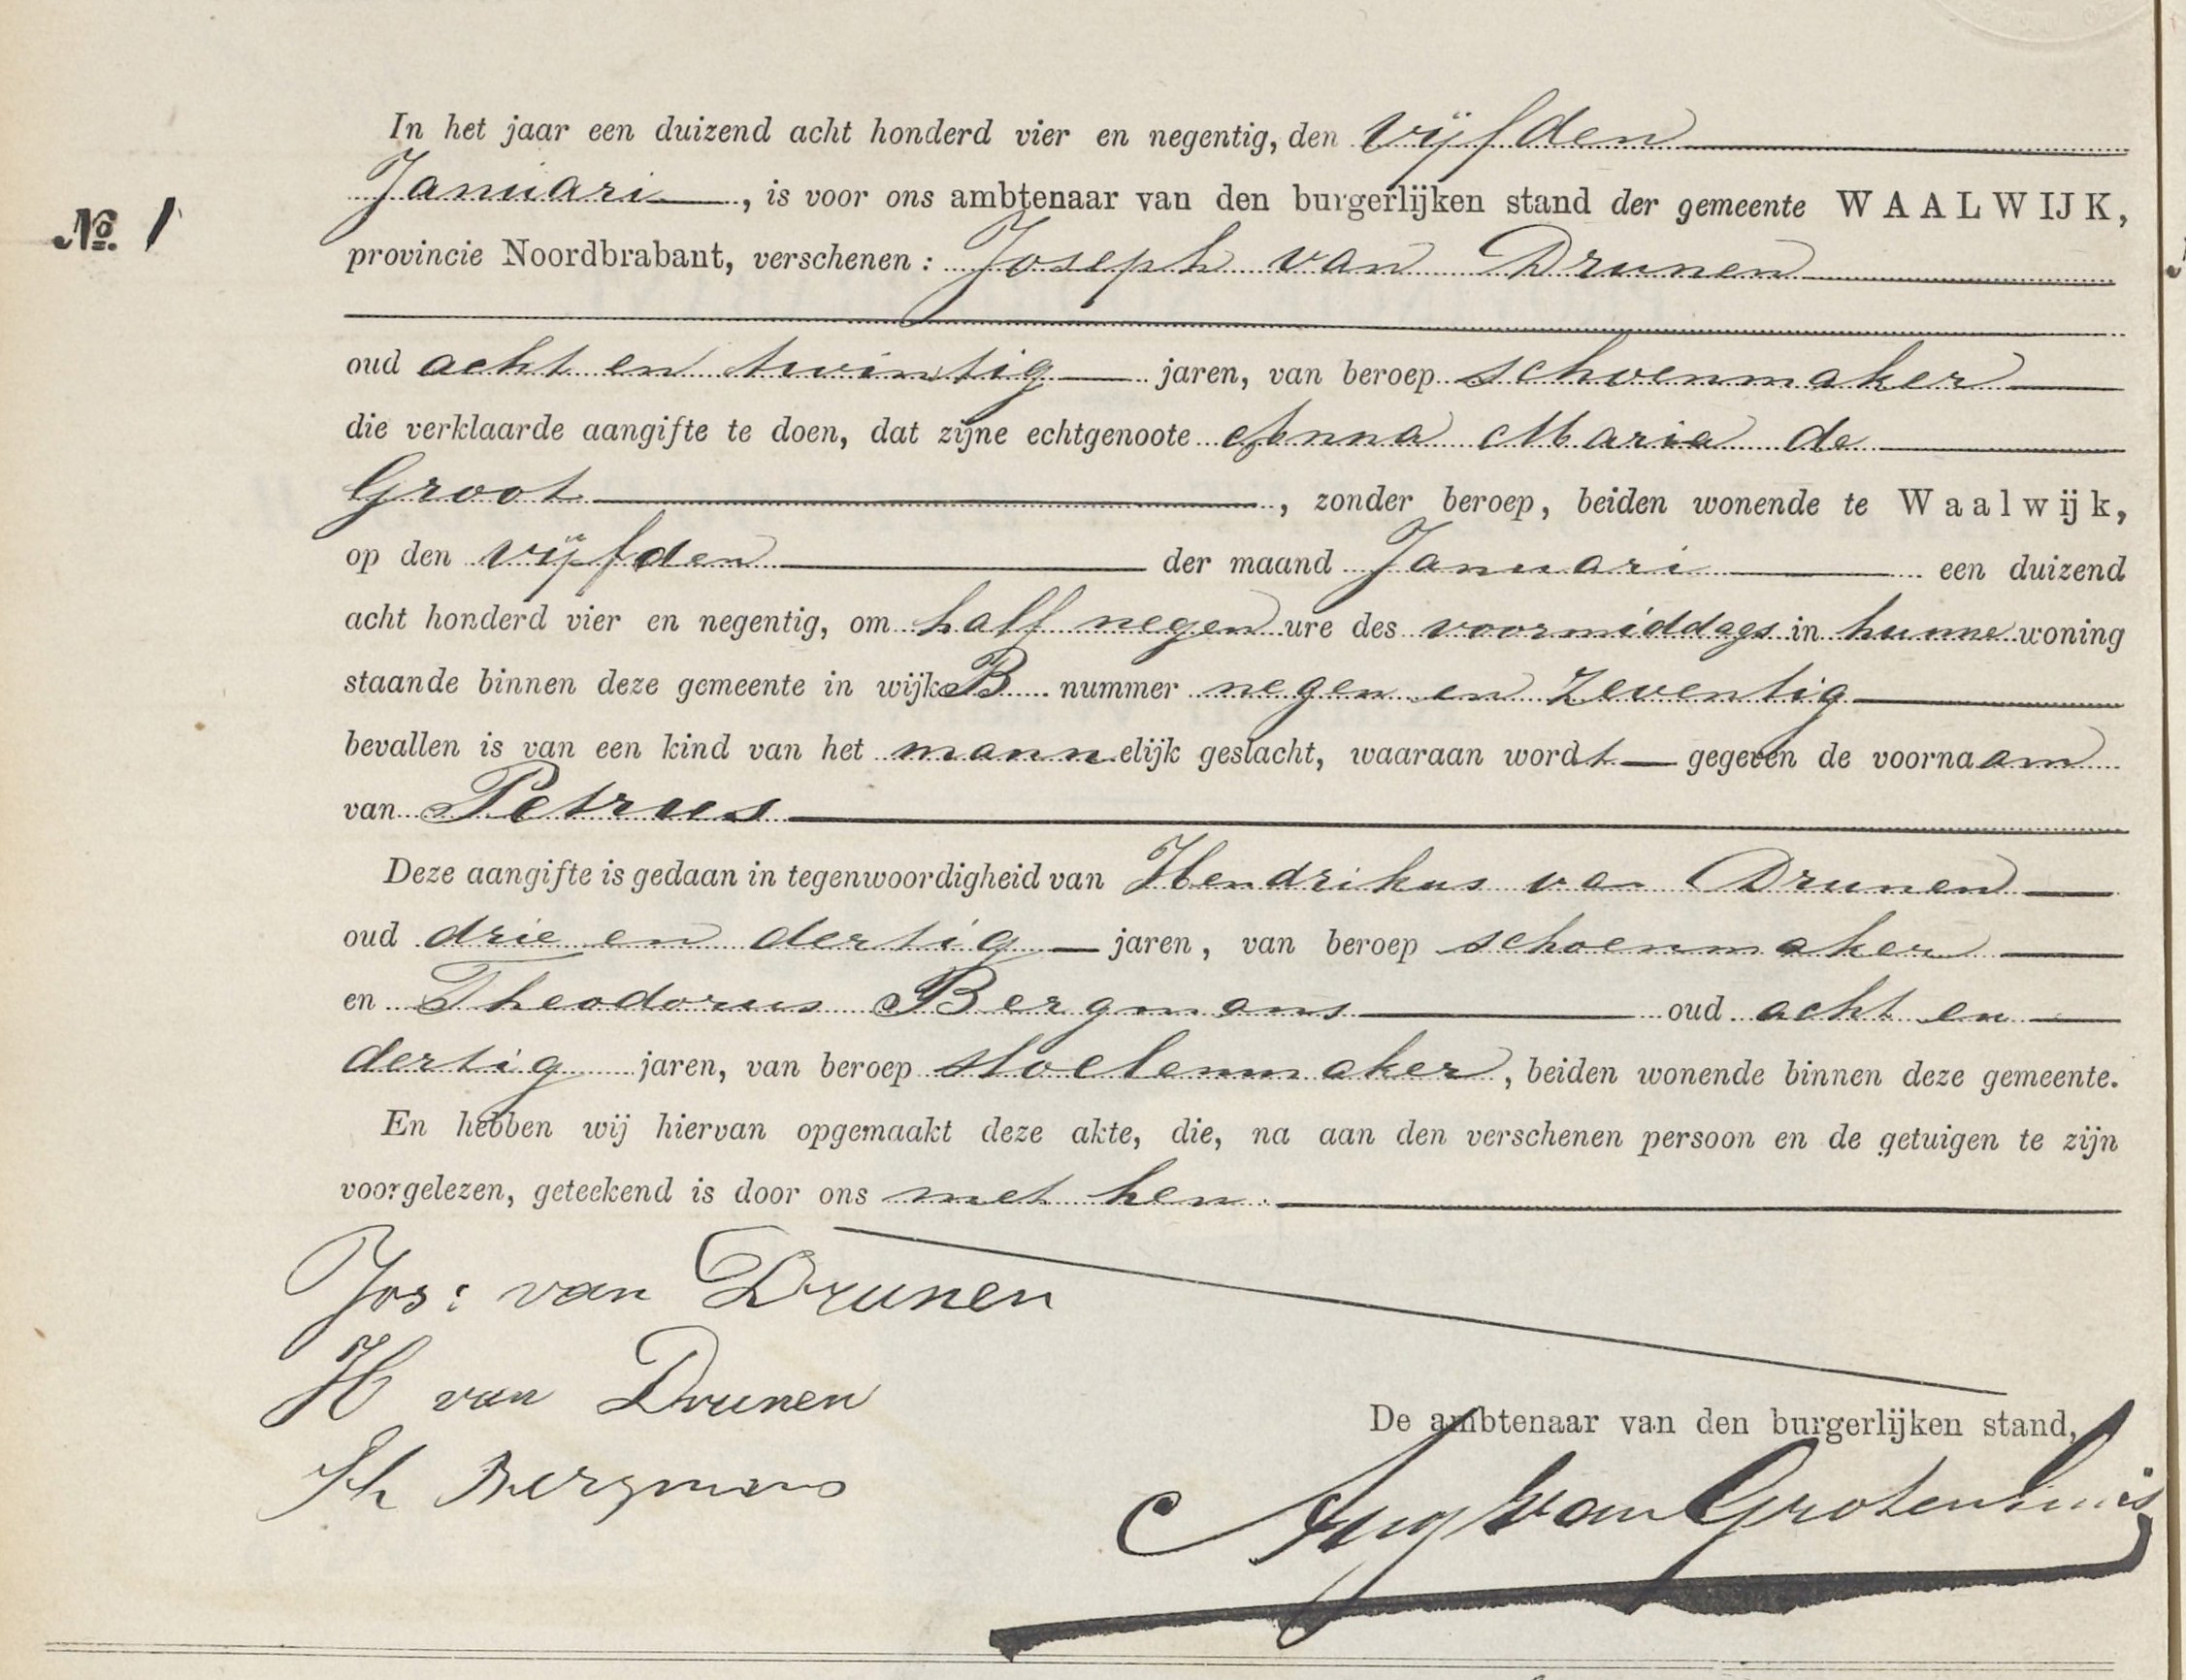 In het jaar een duizend acht honderd vier en negentig, den vijfden
Januari, is voor ons ambtenaar van den burgerlijken stand der gemeente WAALWIJK,
No. 1
provincie Noordbrabant, verschenen: Joseph van Drunen
oud acht en twintig jaren, van beroep schoenmaker
die verklaarde aangifte te doen, dat zijne echtgenoote Anna Maria de
Groot, zonder beroep, beiden wonende te Waalwijk,
op den vijfden der maand Januari een duizend
acht honderd vier en negentig, om half negen ure des voormiddags in hunne woning
staande binnen deze gemeente in wijk B nummer negen en zeventig
bevallen is van een kind van het mannelijk geslacht, waaraan wordt gegeven de voornaam
van Petrus
Deze aangifte is gedaan in tegenwoordigheid van Hendrikus van Drunen
oud drie en dertig jaren, van beroep schoenmaker
en Theodorus Bergmans oud acht en
dertig jaren, van beroep stoelenmaker, beiden wonende binnen deze gemeente.
En hebben wij hiervan opgemaakt deze akte, die, na aan den verschenen persoon en de getuigen te zijn
voorgelezen, geteekend is door ons met hen.
Jos: van Drunen
H van Drunen
De ambtenaar van den burgerlijken stand,
Th Bergmans
Aug van Grotenhuis